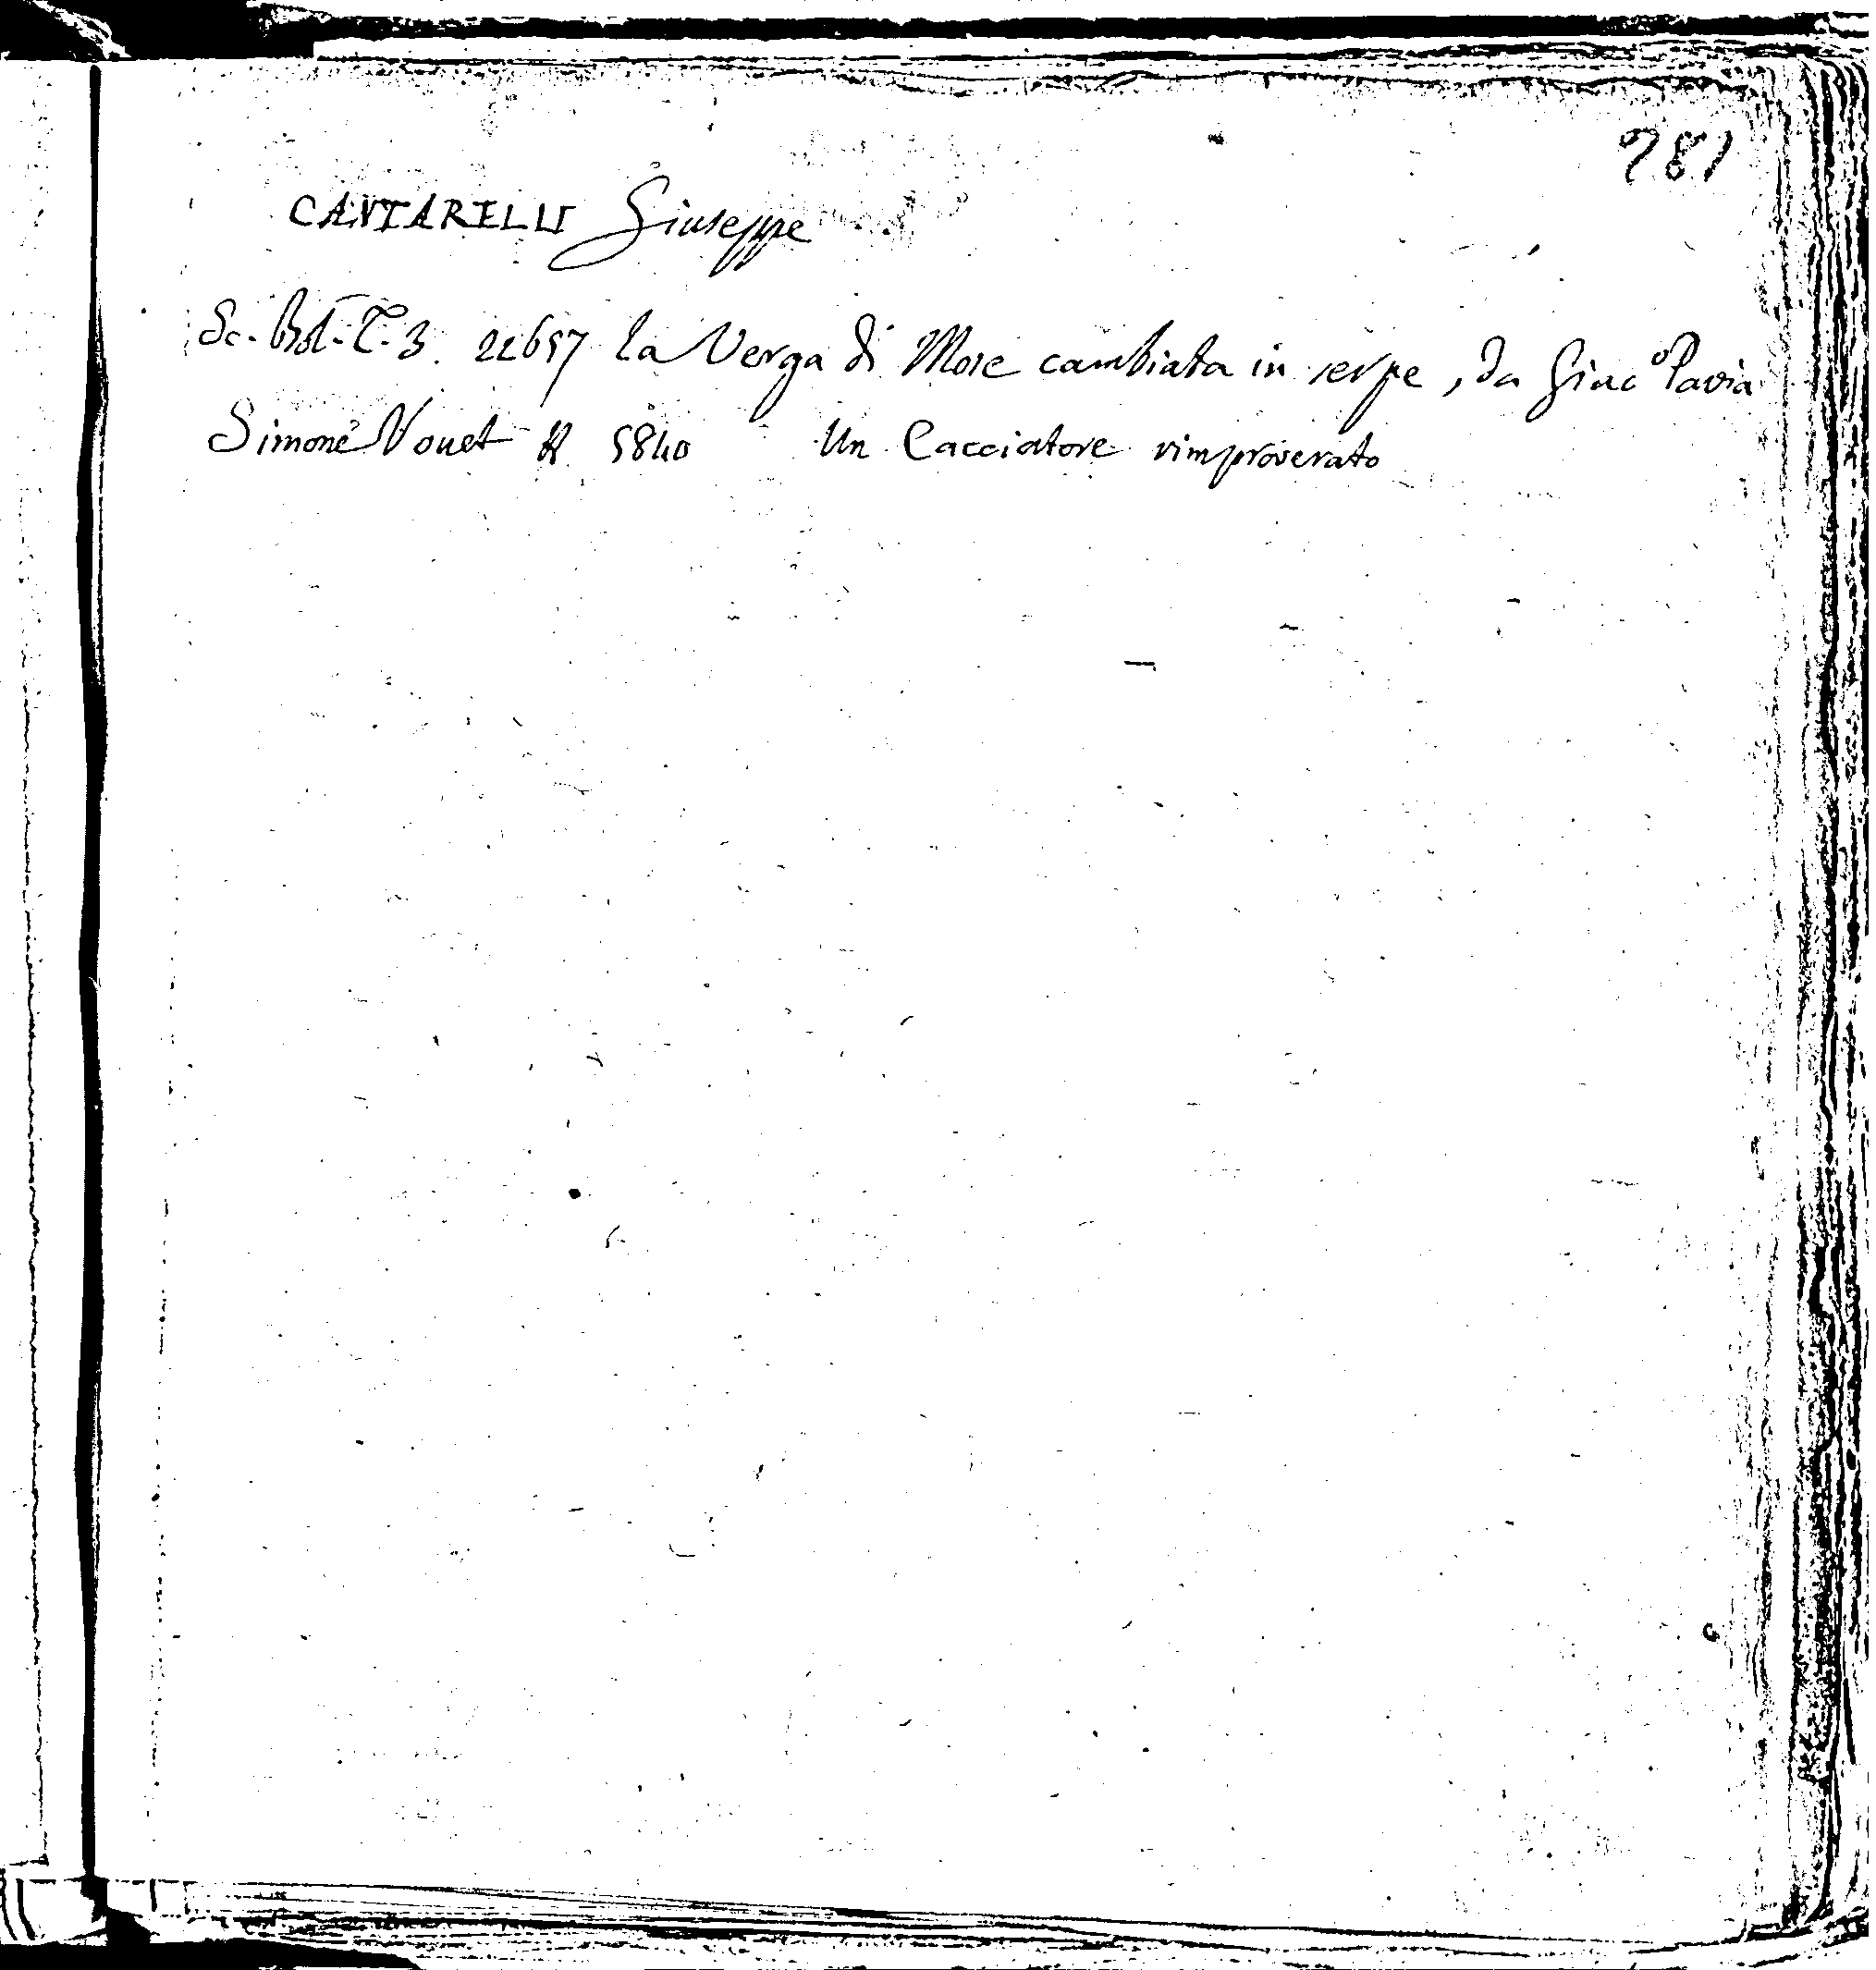 981
CANTARELLI Giuseppe
Sc. Bol. T. 3. 22657 la Verga di Mose cambiata in serpe, da Giac.o Pavia
Simone Vouet R 5840 Un Cacciatore rimproverato